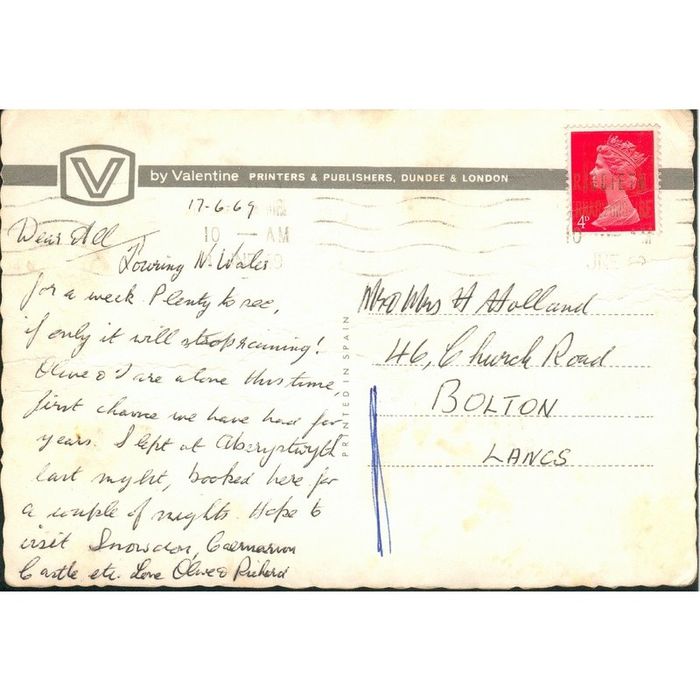 V by Valentine PRINTERS & PUBLISHERS, DUNDEE & LONDON
17-6-69
10 — AM
4D
Dear All
Touring N. Wales
for a week. Plenty to see,
if only it will stop raining!
Olive & I are alone this time,
first chance we have had for
years. Slept at Aberystwyth
last night, booked here for
a couple of nights. Hope to
visit Snowdon, Caernarvon
Castle etc. Love Olive & Richard
PRINTED IN SPAIN
Mr & Mrs H Holland
46, Church Road
BOLTON
LANCS